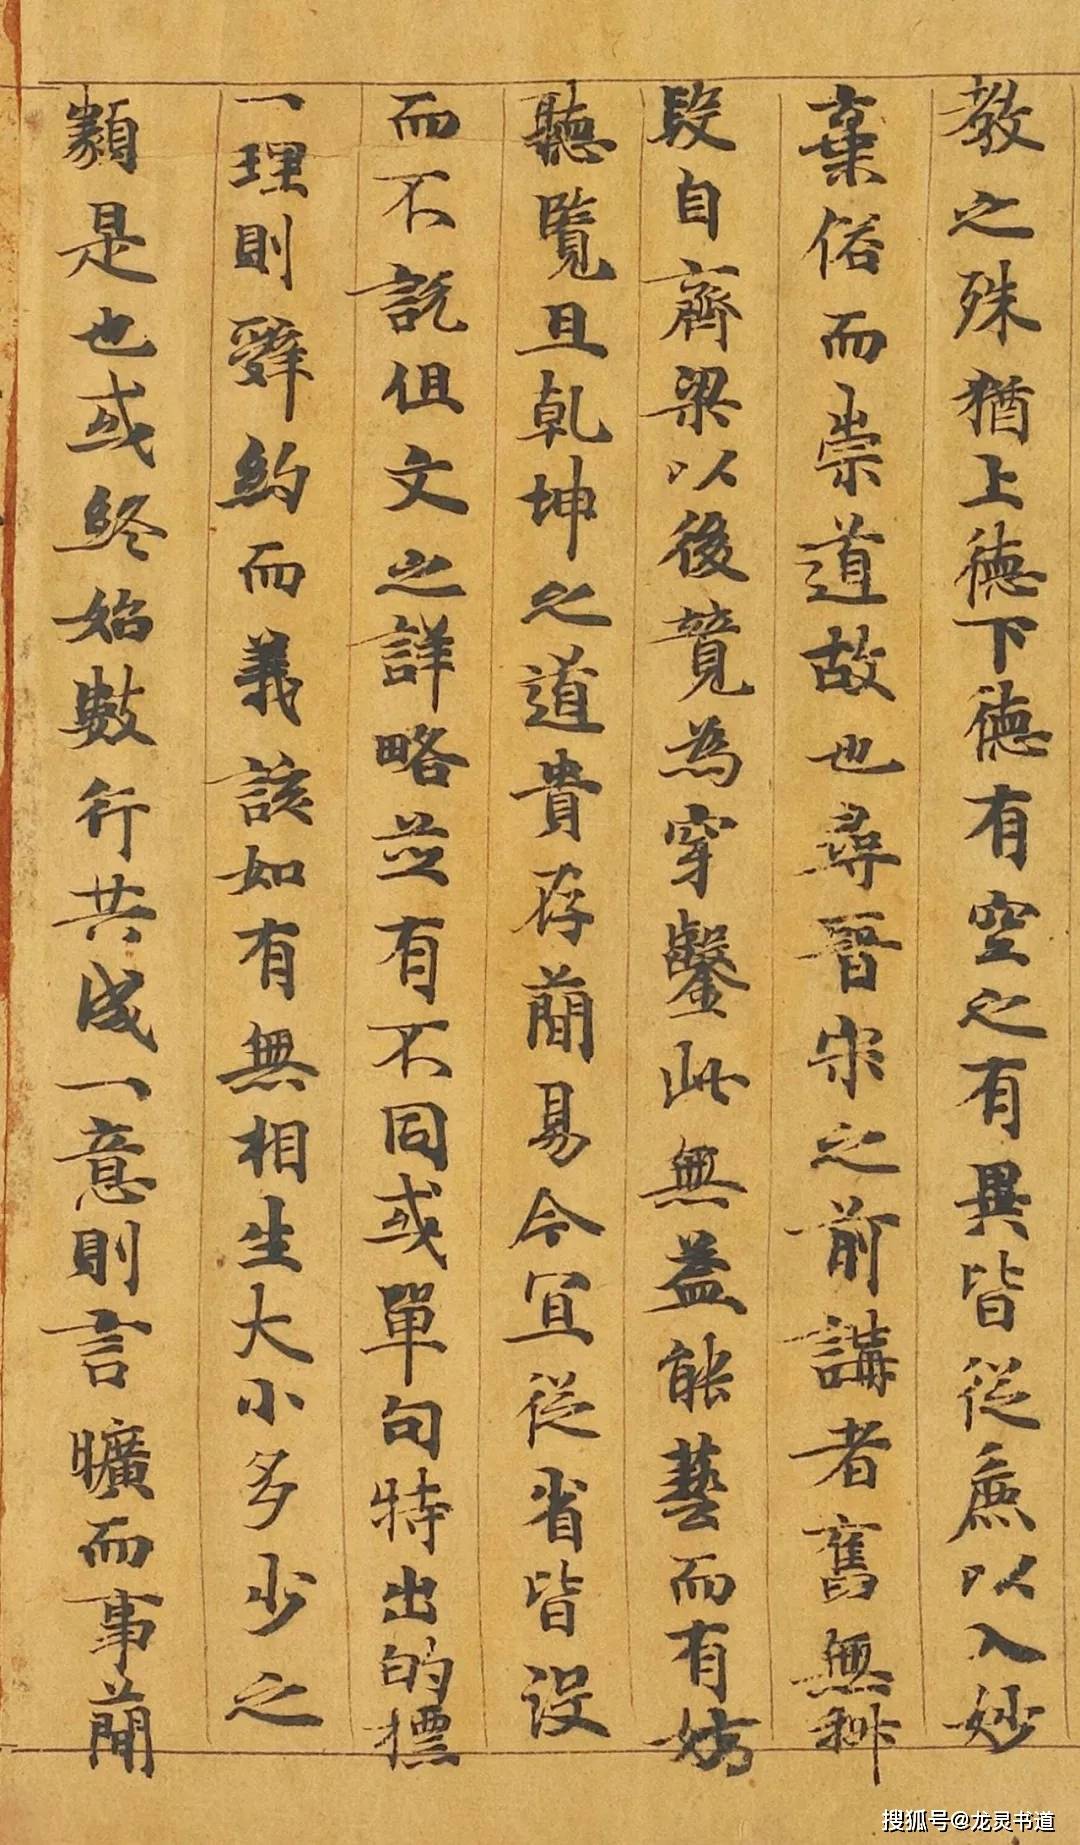 教之殊猶上德下德有空之有異皆從麁以入妙
棄俗而崇道故也尋晉宋之前講者舊無科
段自齊梁以後競為穿鑿此無益能藝而有妨
聽覽且乹坤之道貴存蕳易今宜從省皆没
而不説但文之詳略並有不同或單句特出的標
一理則辭約而義該如有無相生大小多少之
類是也或終始數行共成一意則言曠而事蕳
搜狐号@龙灵书道